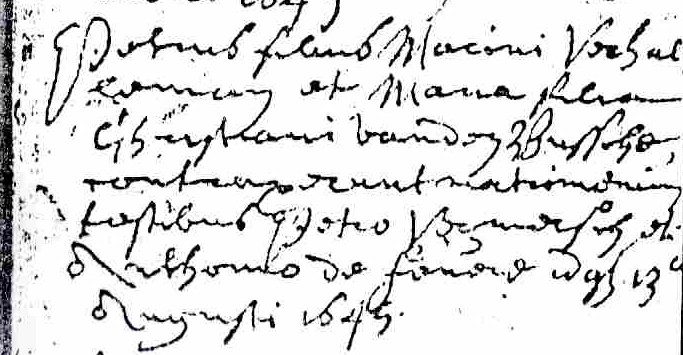 Petrus filius Macini Verhal
lemeun et Maria filia
Christiani vanden Bussche,
contraxerunt matrimonium
testibus Petro Vermersch et
Anthonio de fevere idq 13ª
Augusti 1645.